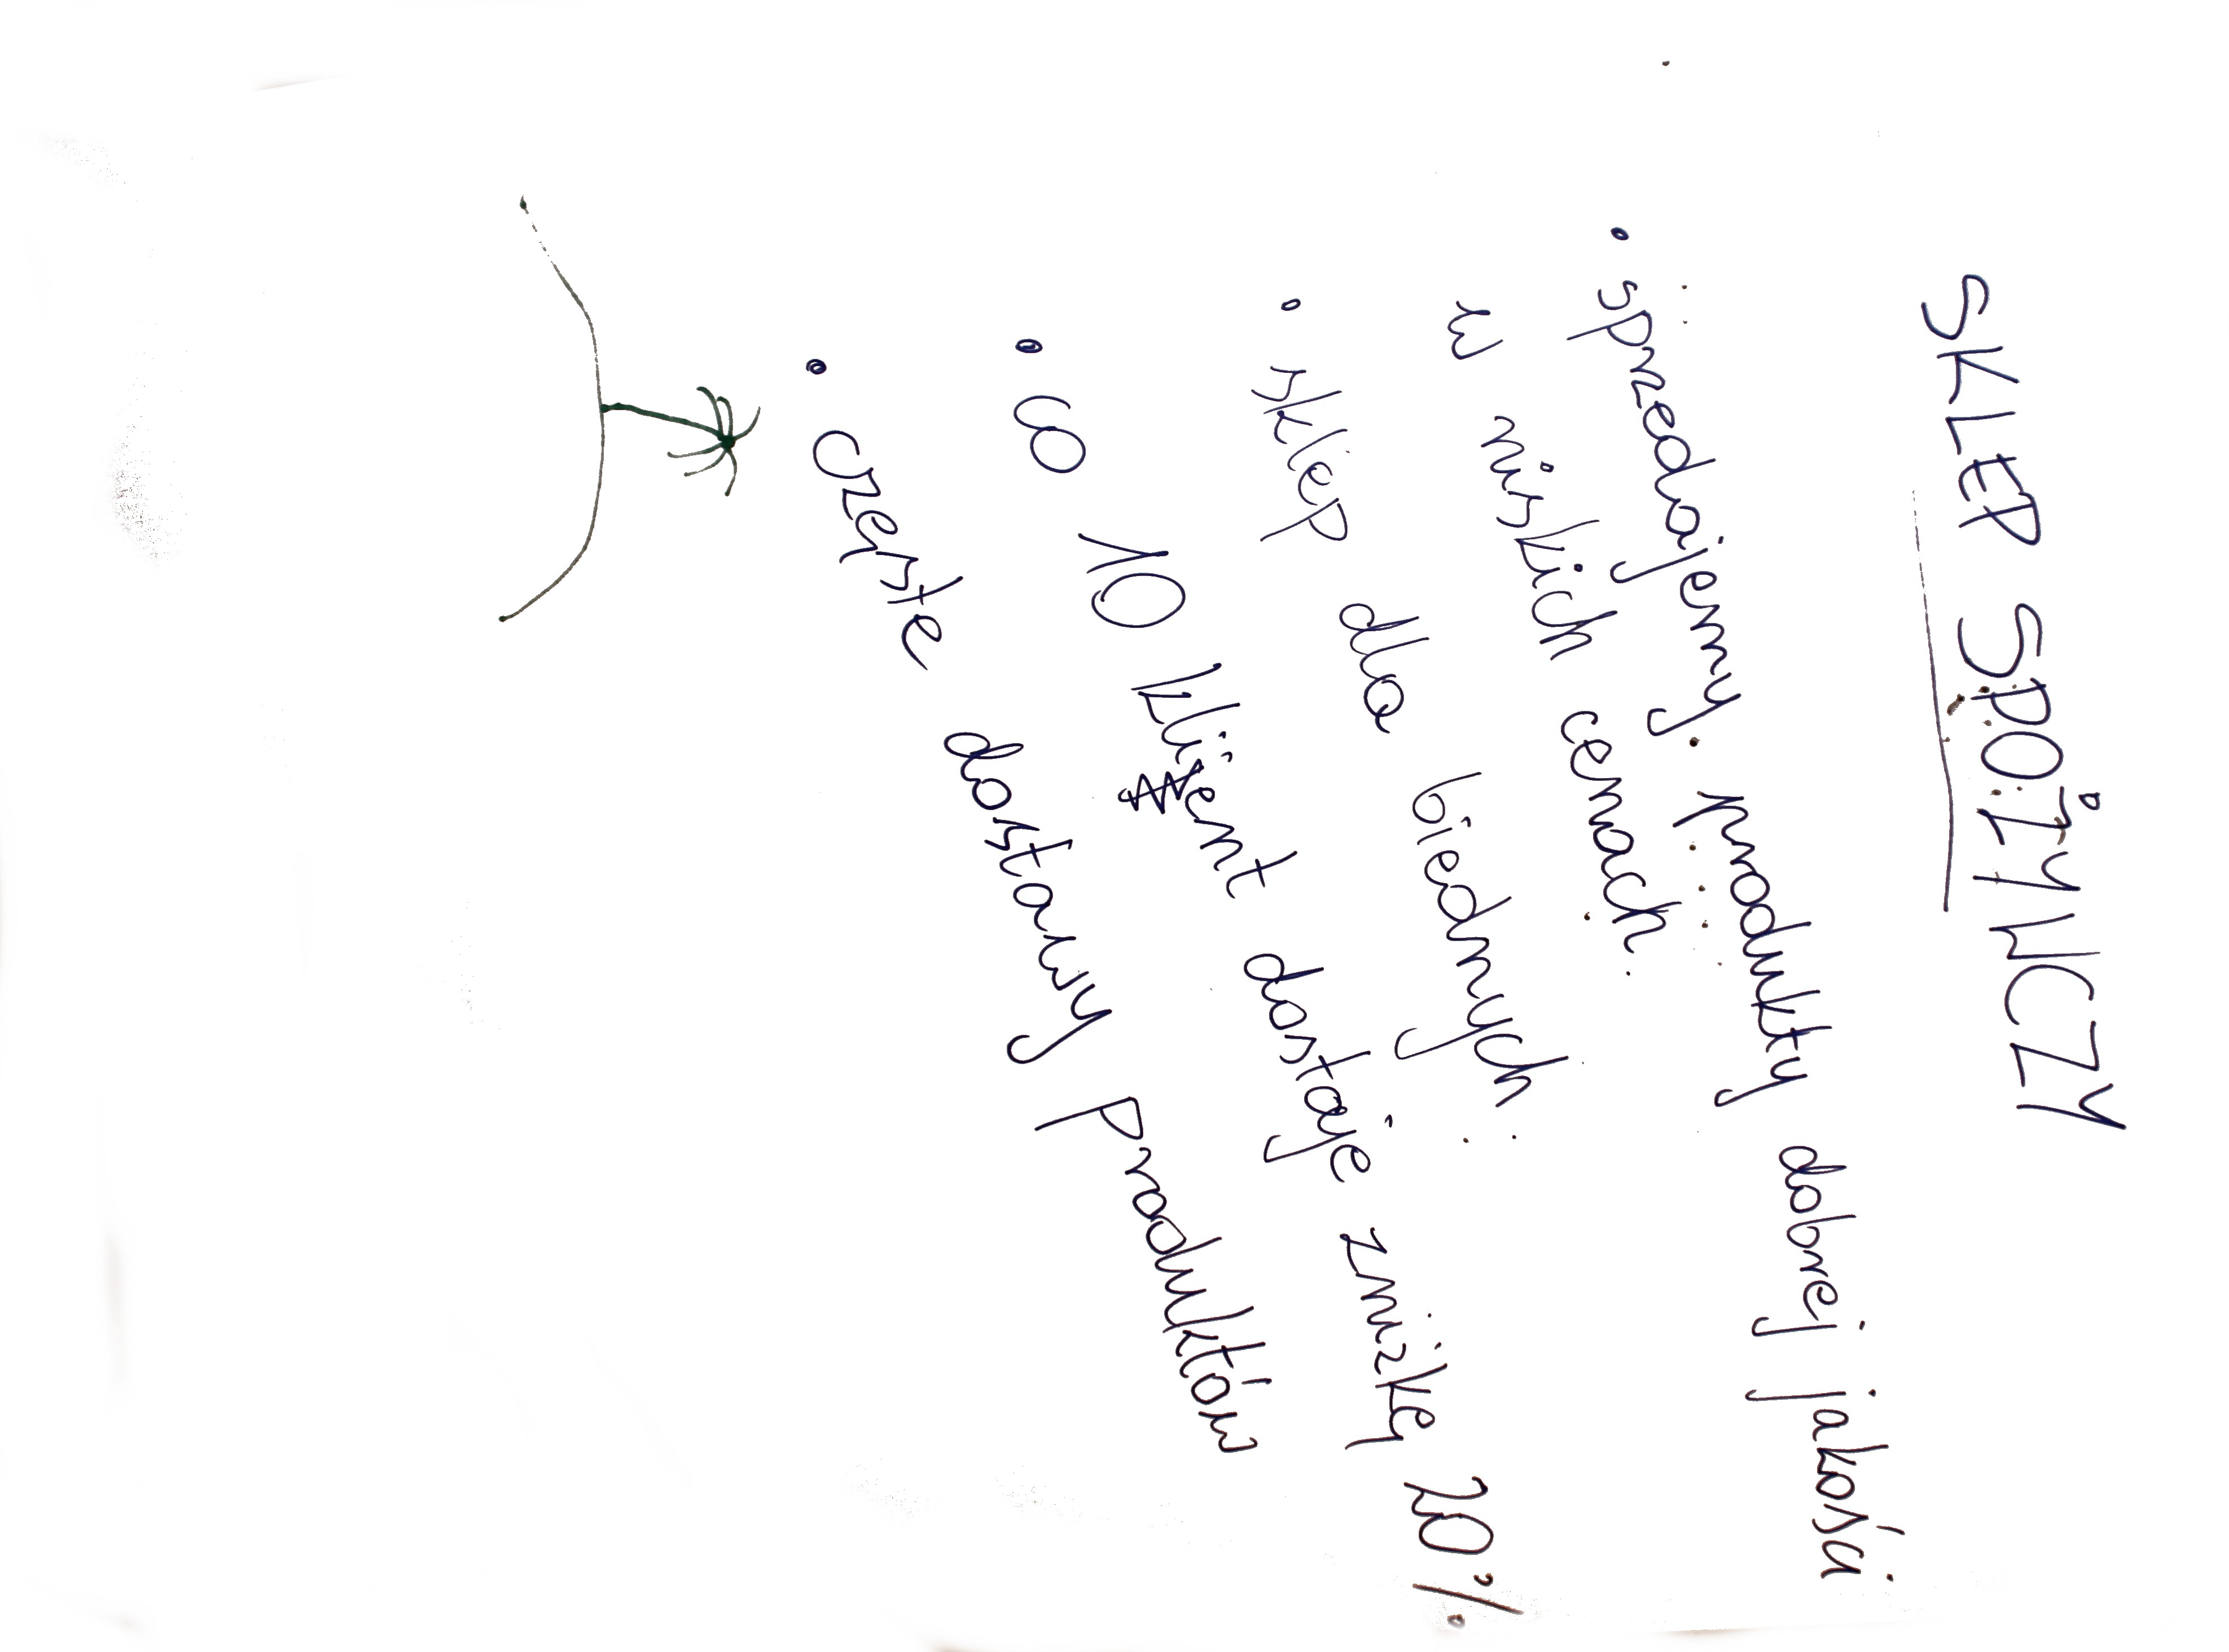 SKLEP SPOŻYWCZY
• sprzedajemy produkty dobrej jakości
w niskich cenach.
• sklep dla biednych
• co 10 klient dostaje zniżkę 20%
• częste dostawy produktów